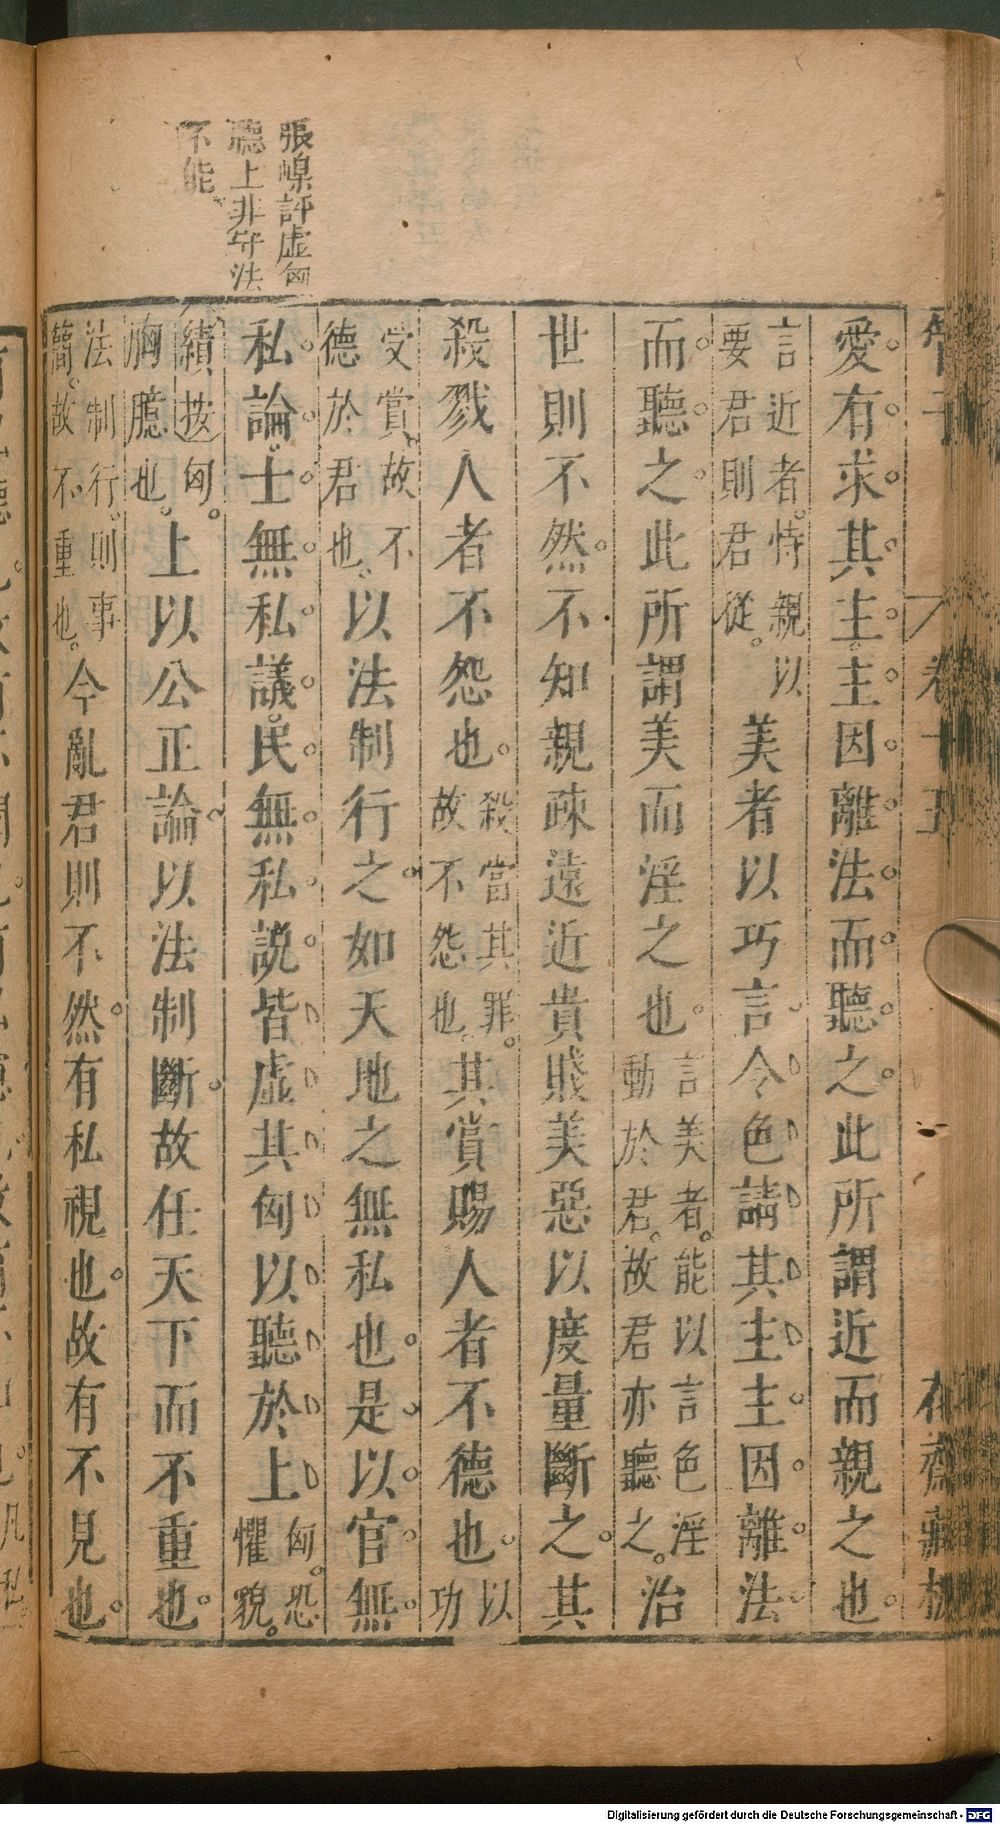 張嵲評虛匈
聽上非守法
不能
管子
卷十五
花齋藏板
愛有求其主主因離法而聽之此所謂近而親之也
言近者恃親以
要君則君從
美者以巧言令色請其主主因離法
而聽之此所謂美而淫之也
言美者能以言色淫
動於君故君亦聽之
治
世則不然不知親疎遠近貴賤美惡以度量斷之其
殺戮人者不怨也
殺當其罪
故不怨也
其賞賜人者不德也
以功
受賞故不
德於君也
以法制行之如天地之無私也是以官無
私論士無私議民無私說皆虛其匈以聽於上
匈恐
懼貌
續按匈
胸臆也
上以公正論以法制斷故任天下而不重也
法制行則事
簡故不重也
今亂君則不然有私視也故有不見也
凡私
Digitalisierung gefördert durch die Deutsche Forschungsgemeinschaft - DFG